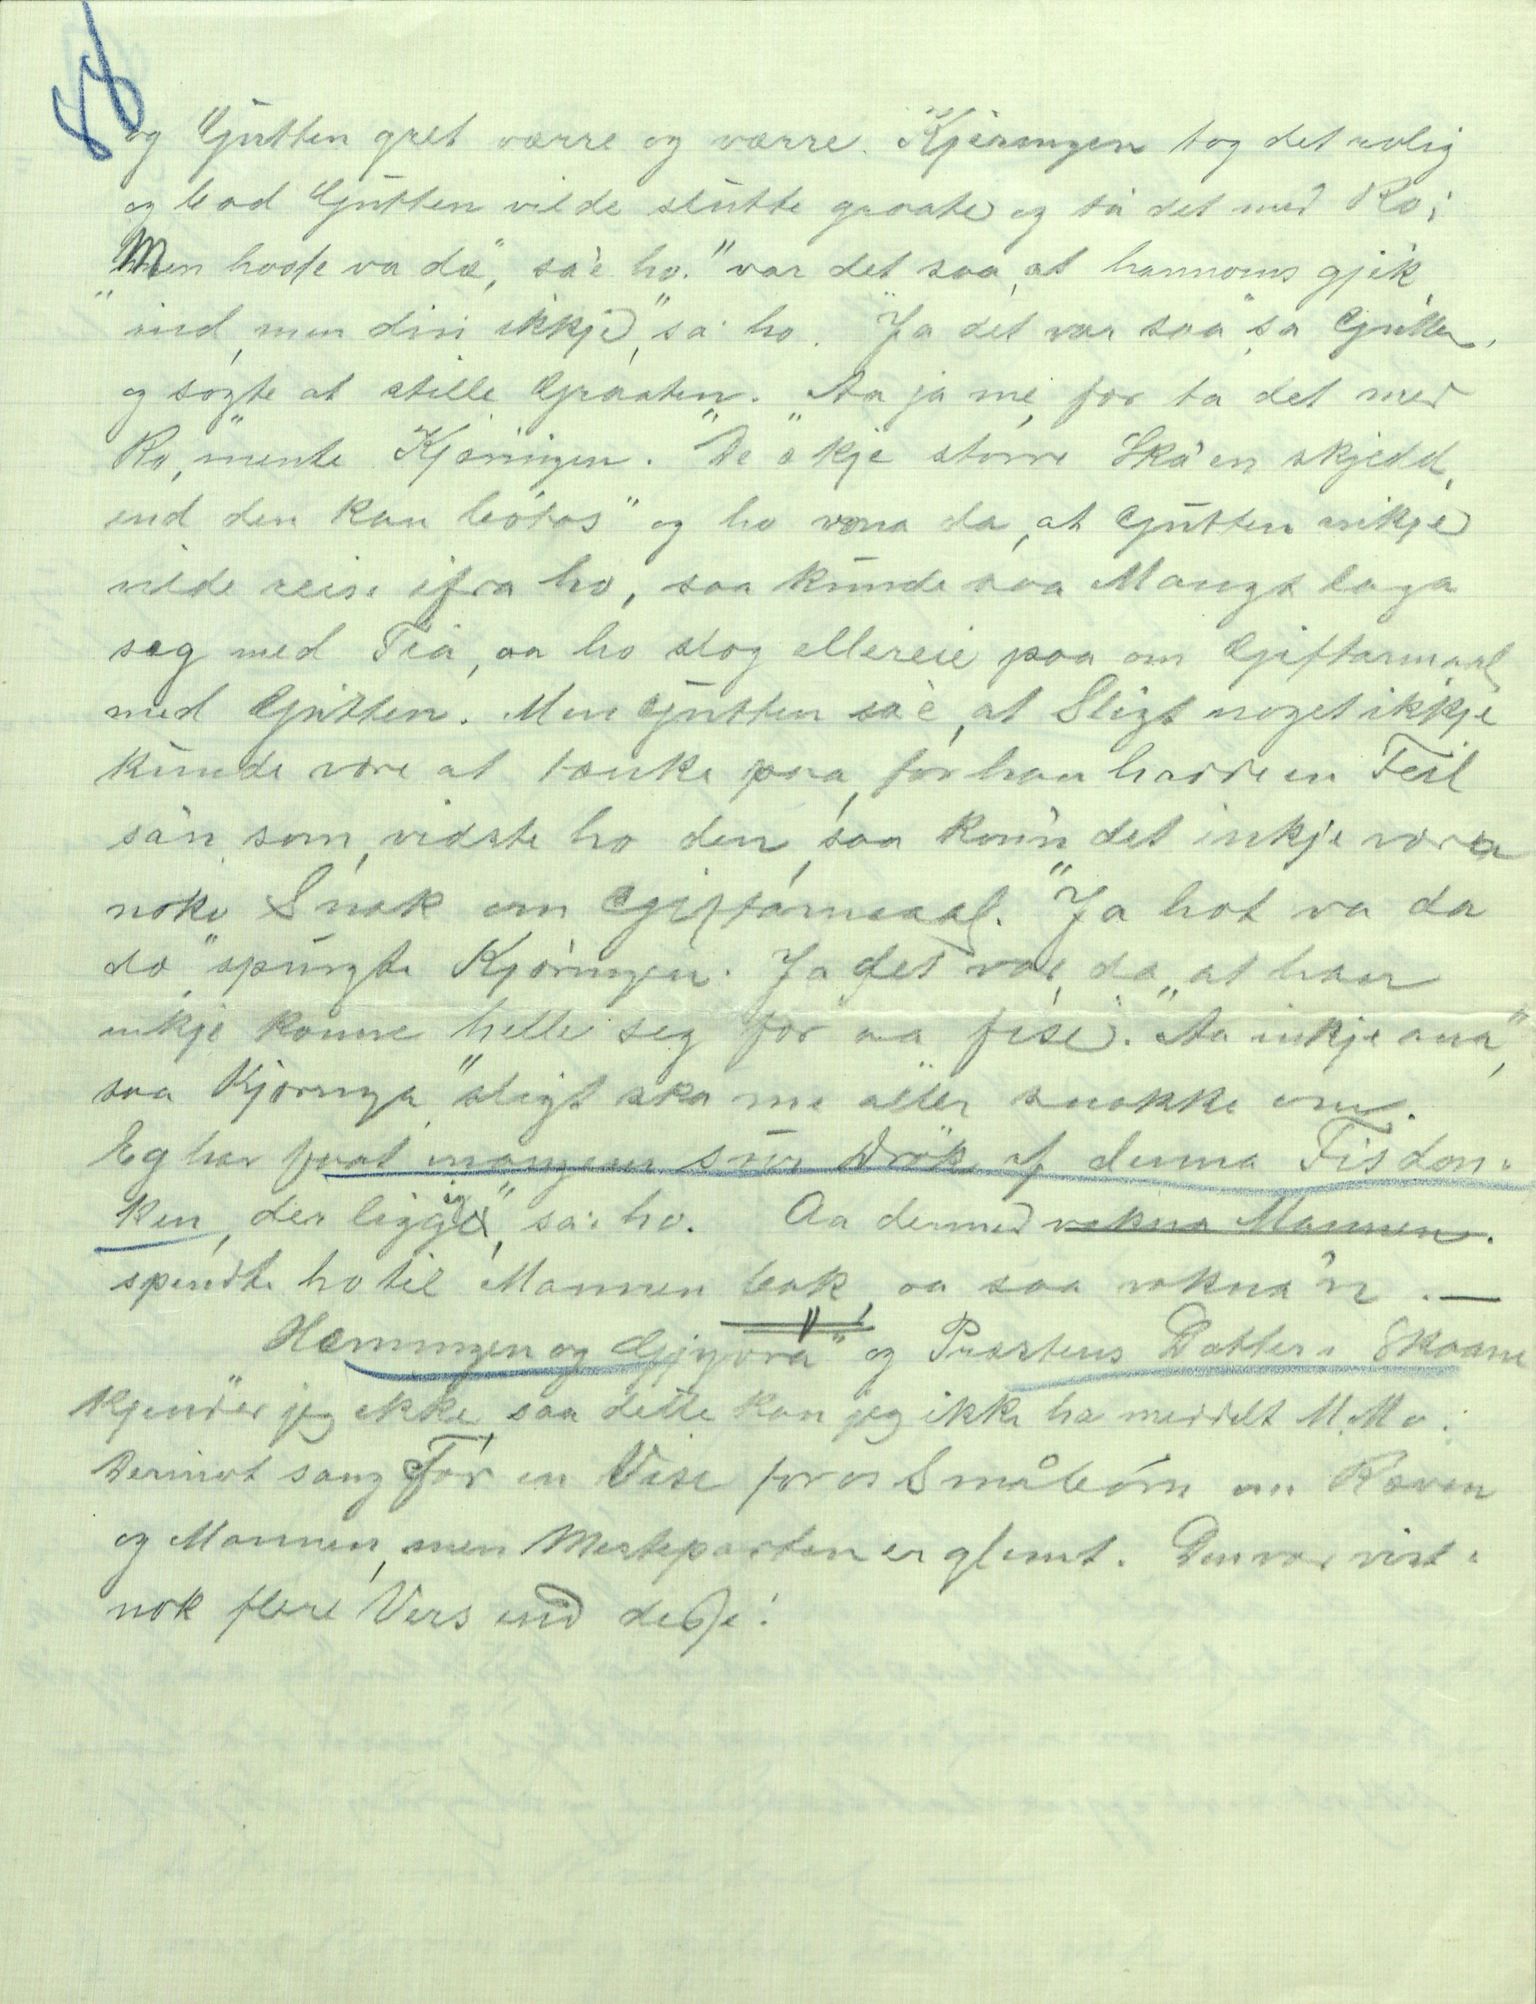 88
og Gutten gret værre og værre. Kjæringen tog det rolig
og bad Gutten vilde slutte graate og ta det med Ro;
"Men hosse va dæ", sa'e ho. "var det saa, at hannoms gjik
"ind, men din ikkje," sa' ho. "Ja det var saa" sa Gutten,
og søgte at stille Graaten. "Aa ja me for ta det med
Ro," mente Kjæringen. "De æ kje större Ska'en skjedd,
end den kan bötas" og ho vona da, at Gutten inkje
vilde reise ifra ho, saa kunde saa Mangt laga
seg med Tia, aa ho slog allereie paa om Giftarmaal
med Gutten. Men Gutten sa'e, at Sligt noget ikkje
kunde være at tænke paa, for han hadde en Feil
sa'n, som, vidste ho den, saa konn det inkje væra
noke Snak om Giftarmaal. "Ja hot va da
dæ" spurgte Kjæringen. Ja det var da, at han
inkje konne helle seg for aa fise. "Aa inkje ana",
saa Kjæringa "sligt ska me aller snakke om.
Eg har faat mangen sur Drök af denna Fisdon-
ken, der ligg'e", sa' ho. Aa dermed vakna Mannen.
spendte ho til Mannen bak, aa saa vakna'n. —
Hæmingen og Gjyvra" og Præstens Datter i Skaane
kjender jeg ikke, saa dette kan jeg ikke ha meddelt M. Mo.
Derimot sang Far en Vise for os Småbörn om Ræven
og Mannen, men Mesteparten er glemt. Den var vist-
nok flere Vers end desse: